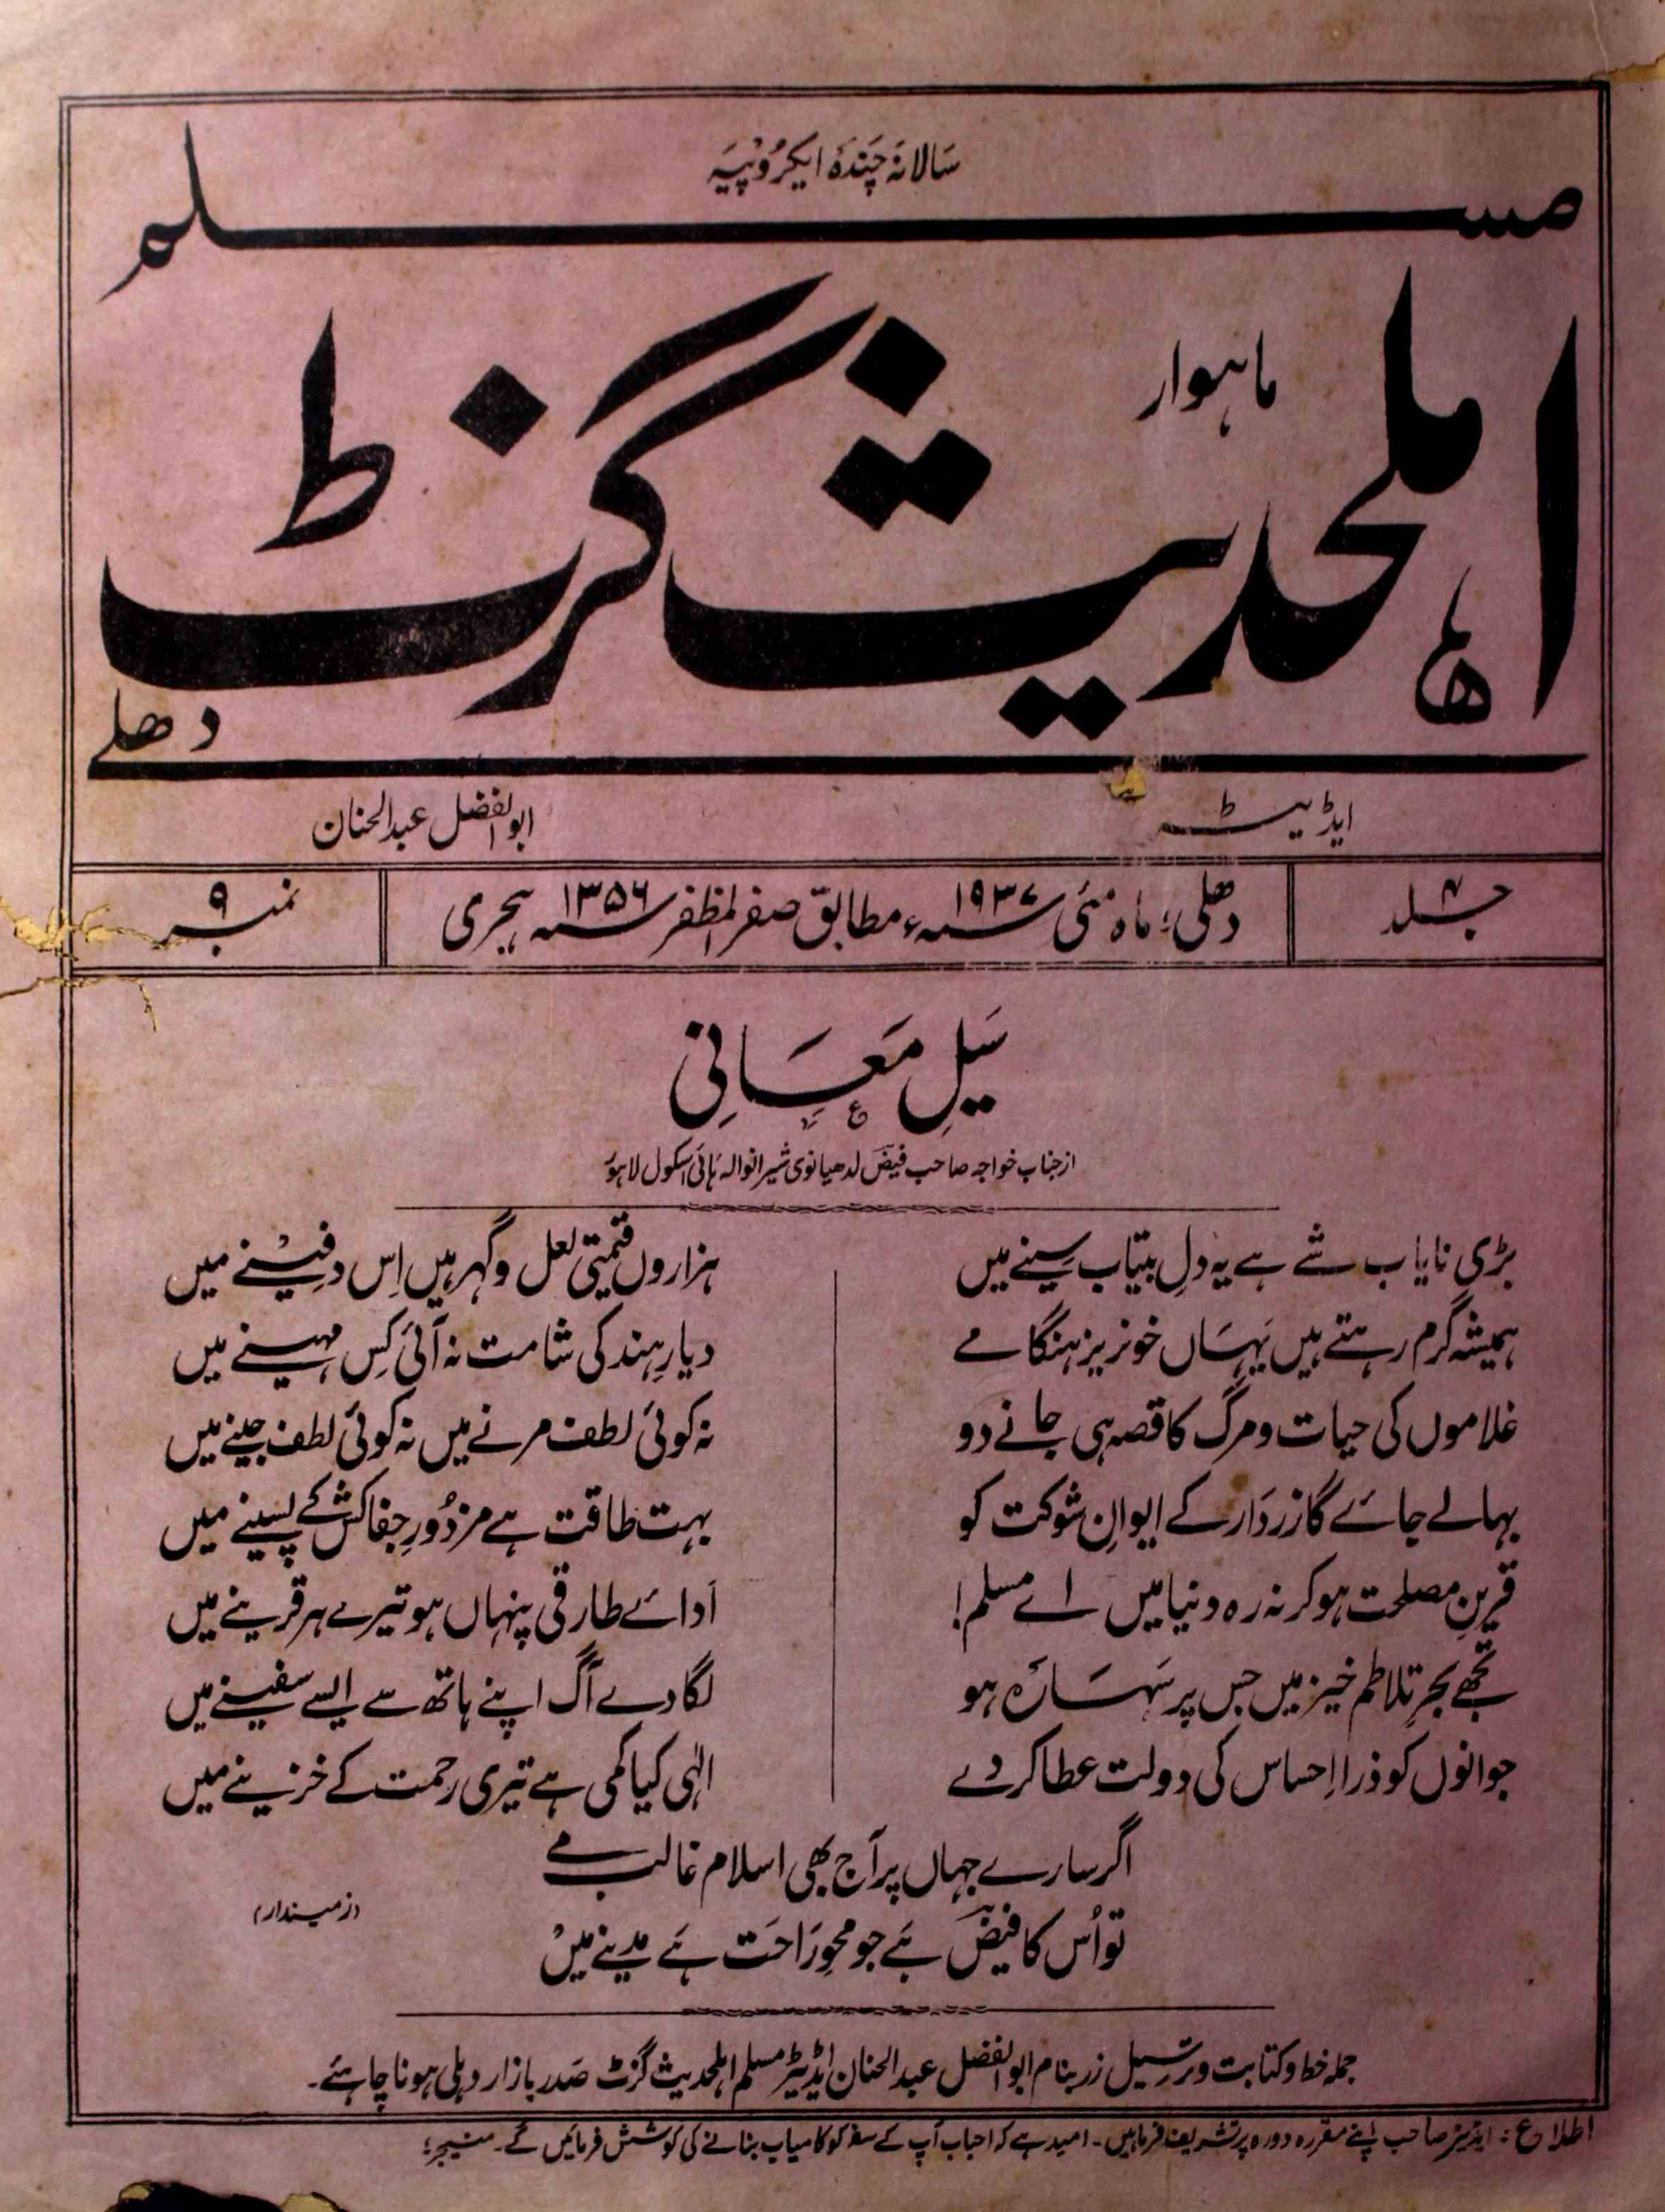 سالانہ چندہ ایکروپیہ
مسلم
ماہوار
اہلحدیث گزٹ
دھلے
ایڈیٹر
ابوالفضل عبدالحنان
جلد ۴
دھلی؛ ماہ مئی سنہ ۱۹۳۷ء مطابق صفر المظفر سنہ ۱۳۵۶ ہجری
نمبر ۹
سَیلِ مَعَانِی
از جناب خواجہ صاحب فیض لدھیانوی شیرانوالہ ہائی اسکول لاہور
بڑی نایاب شے ہے یہ دلِ بیتاب سینے میں
ہزاروں قیمتی لعل و گہر ہیں اِس دفینے میں
ہمیشہ گرم رہتے ہیں یہاں خونریز ہنگامے
دیارِ ہند کی شامت نہ آئی کِس مہینے میں
غلاموں کی حیات و مرگ کا قصہ ہی جانے دو
نہ کوئی لطف مرنے میں نہ کوئی لطف جینے میں
بہالے جائے گا زردار کے ایوانِ شوکت کو
بہت طاقت ہے مزدُورِ جفاکش کے پسینے میں
قرینِ مصلحت ہو کر نہ رہ دنیا میں اے مسلم!
اَدائے طارقی پنہاں ہو تیرے ہر قرینے میں
تجھے بحرِ تلاطم خیز میں جس پر سَہَارَہ ہو
لگا دے آگ اپنے ہاتھ سے ایسے سفینے میں
جوانوں کو ذرا اِحساس کی دولت عطا کر دے
الٰہی کیا کمی ہے تیری رحمت کے خزینے میں
اگر سارے جہاں پر آج بھی اسلام غالب ہے
تو اُس کا فیض ہَے جو محوِ رَاحَت ہَے مدینے میں
(زمیندار)
جملہ خط و کتابت و ترسیل زر بنام ابوالفضل عبدالحنان ایڈیٹر مسلم اہلحدیث گزٹ صَدر بازار دہلی ہونا چاہئے۔
اطلاع: ایڈیٹر صاحب اپنے مقررہ دورہ پر تشریف فرما ہیں۔ امید ہے کہ احباب آپ کے سفر کو کامیاب بنانے کی کوشش فرمائیں گے۔ منیجر؛